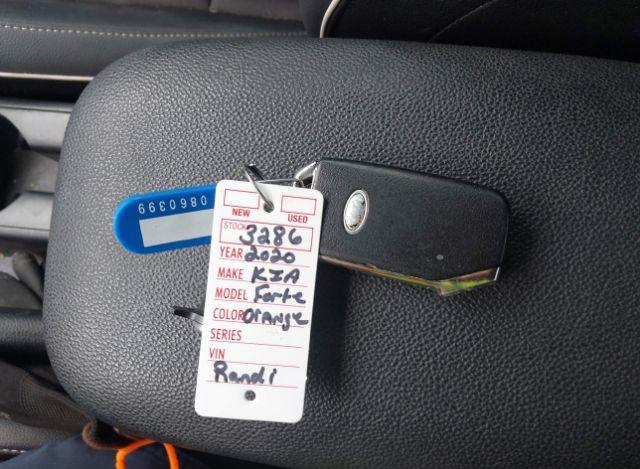 0860399
NEW USED
STOCK 3286
YEAR 2020
MAKE KIA
MODEL Forte
COLOR Orange
SERIES
VIN
Randi